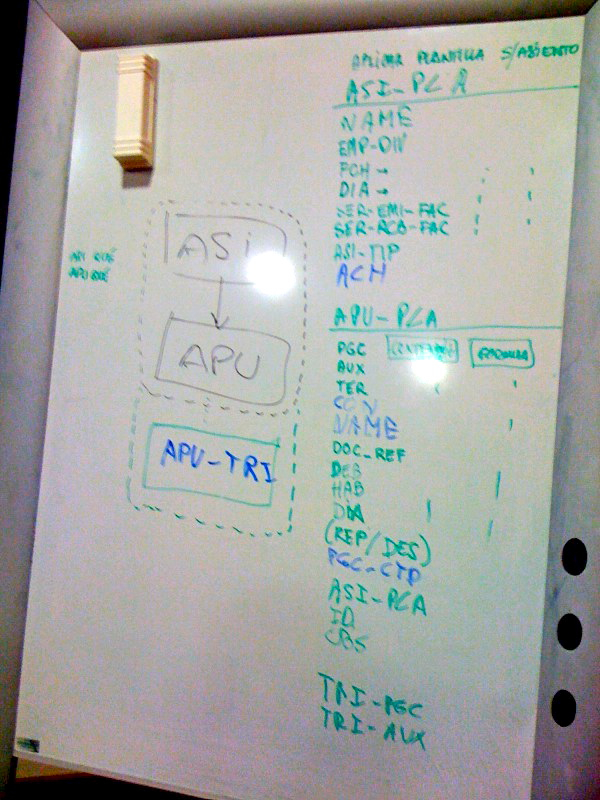 APLICAR PLANTILLA S/ASIENTO
ASI-PCA
NAME
EMP-DIV
FCH →
DIA →
SER-EMI-FAC
SER-RCB-FAC
ASI-TIP
ACM
ASI
APU
APU-TRI
APU-PCA
PGC CONTENIDO FORMULA
AUX
TER
NAME
DOC_REF
DEB
HAB
DIA
(REP/DES)
PGC-CTP
ASI-PCA
ID
OBS
TRI-PGC
TRI-AUX